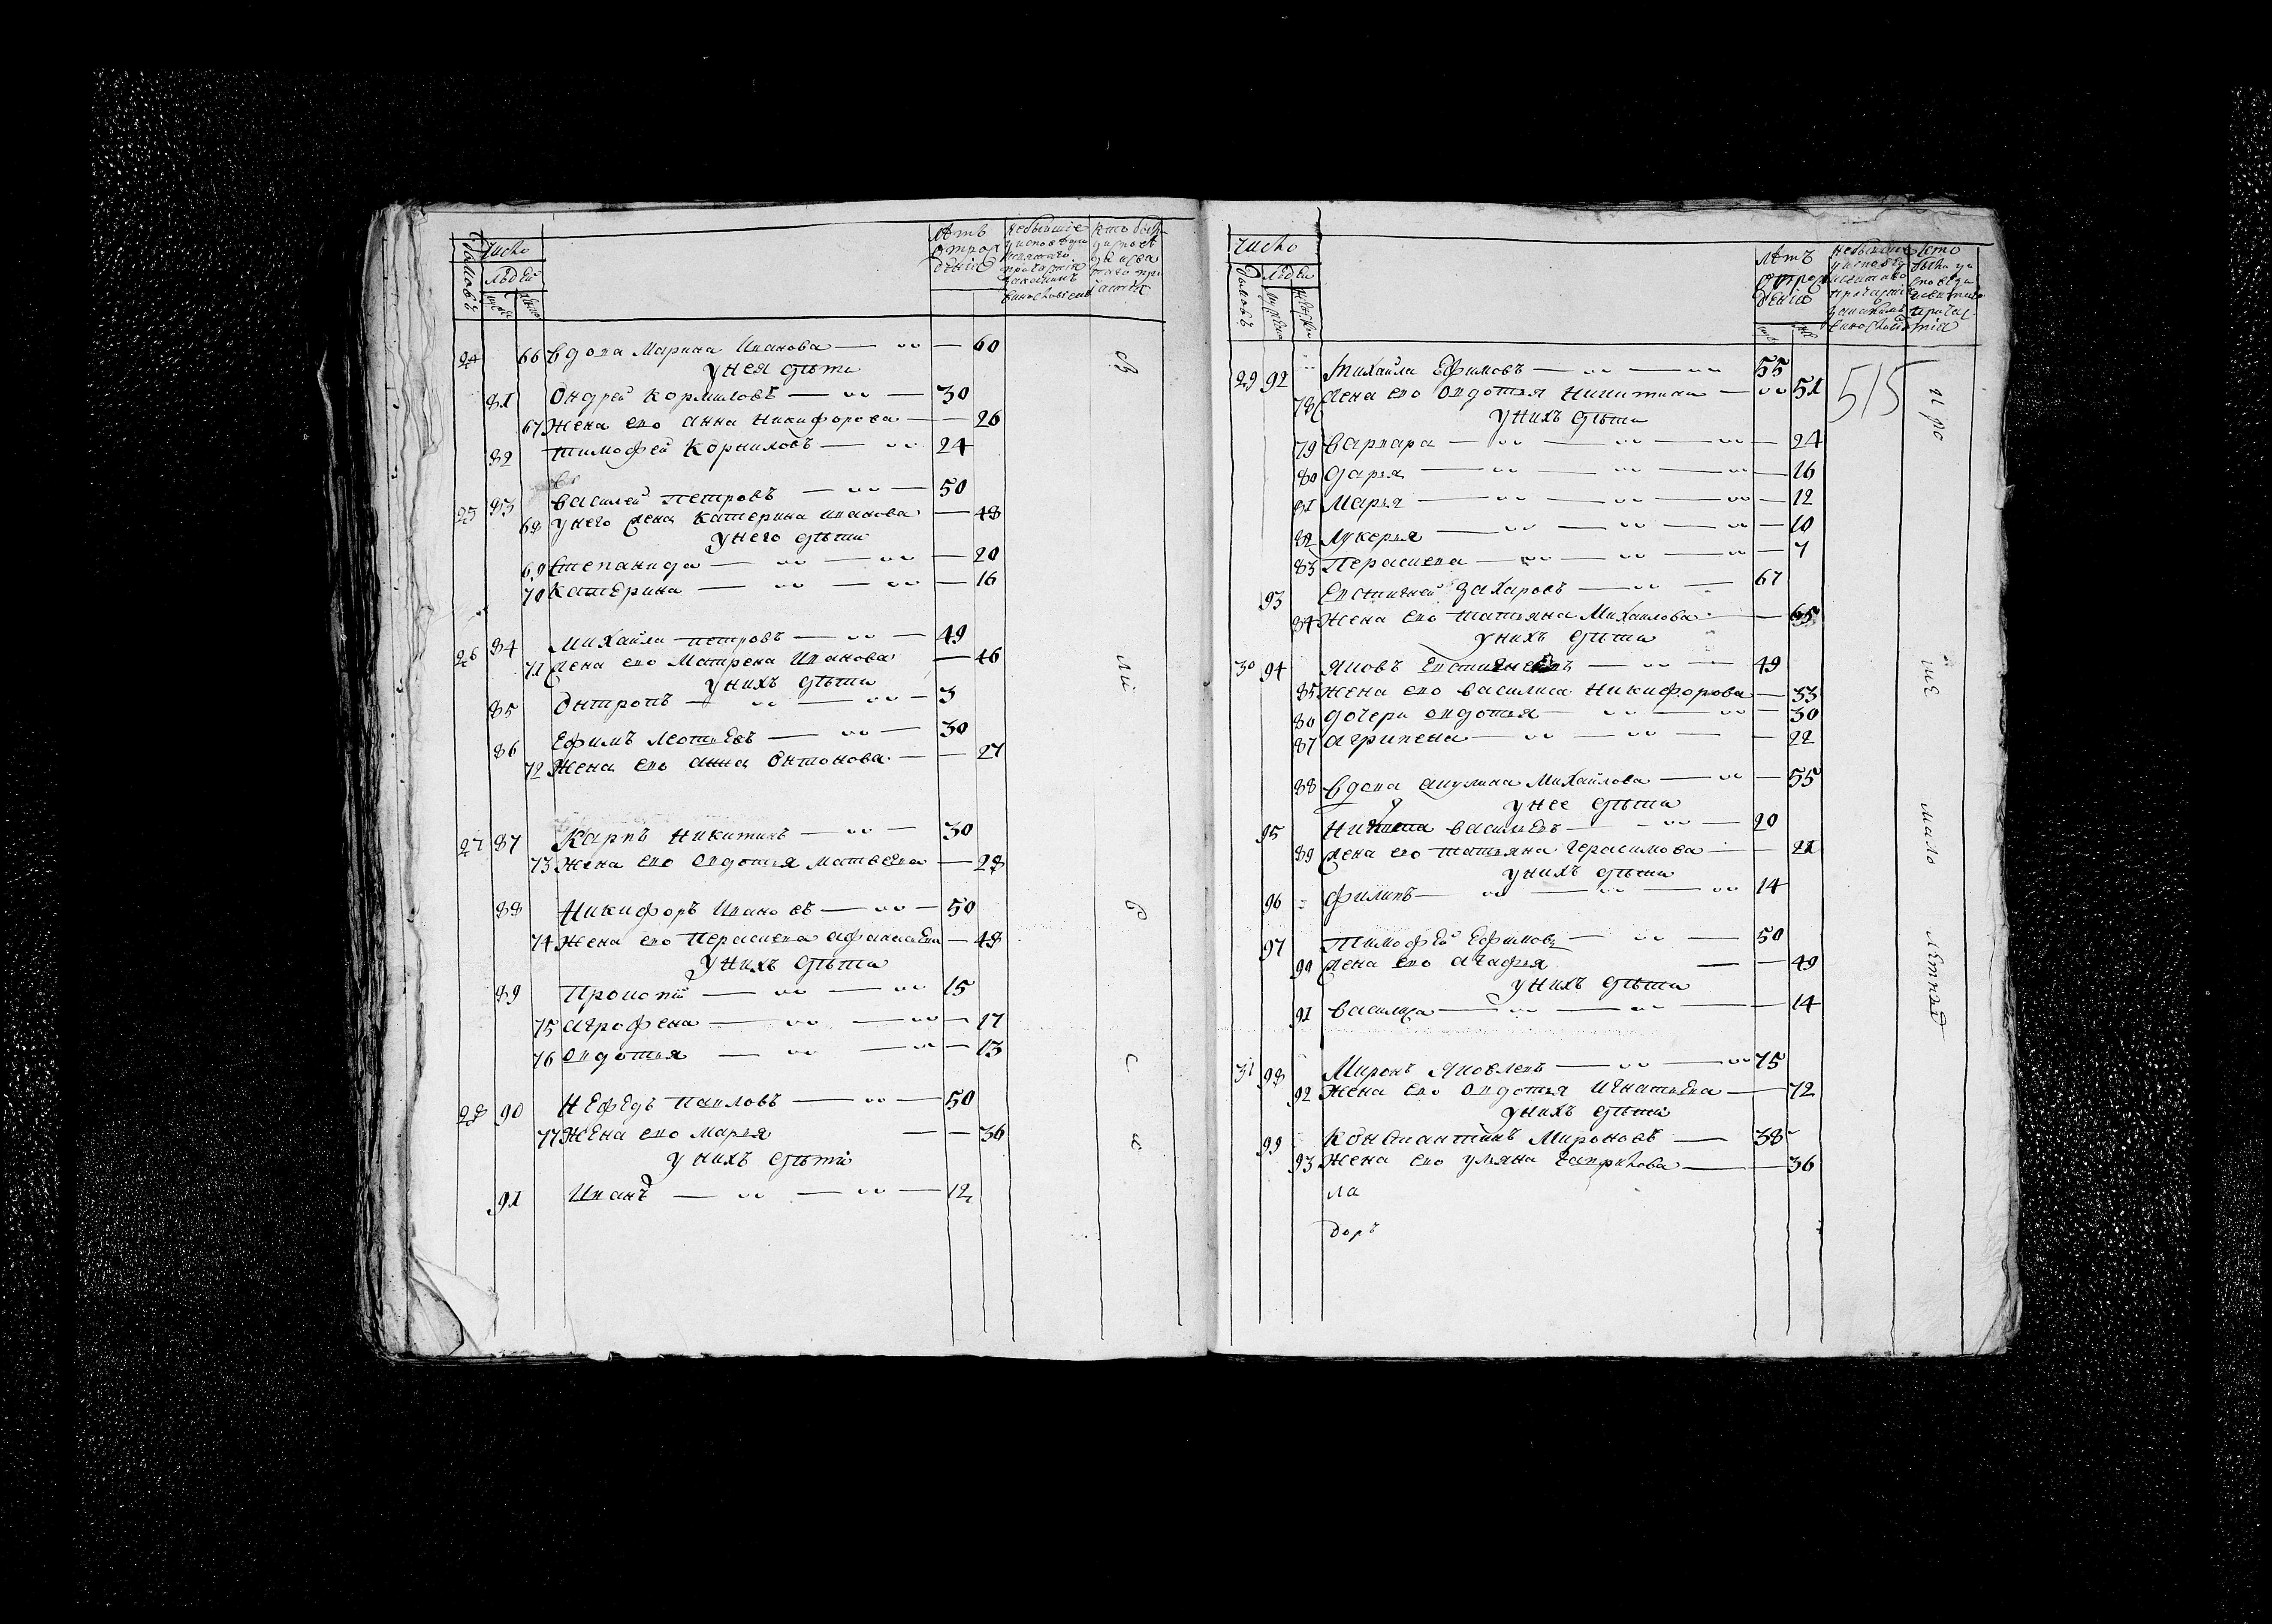 число
домовъ
людей
лѣтъ
отрож
дения
24 66 вдова Марина Иванова — 60
унея дѣти
81 Ондрей Кормиловъ — 30
67 Жена ево Анна Никифорова — 26
82 Тимофей Корниловъ — 24
25 83 Василей Петровъ — 50
68 унего жена Катерина Иванова — 48
унего дѣти
69 Степанида — 20
70 Катерина — 16
26 84 Михайла Петровъ — 49
71 Жена ево Матрена Иванова — 46
унихъ дѣти
85 Онтропъ — 3
86 Ефимъ Леонтьевъ — 30
72 Жена ево Анна Онтонова — 27
27 87 Карпъ Никитинъ — 30
73 Жена ево Овдотья Матвеева — 28
88 Никифоръ Ивановъ — 50
74 Жена ево Перасковя Афанасьева — 48
унихъ дѣти
89 Прокопїй — 15
75 Агрофена — 17
76 Овдотья — 13
28 90 Нефедъ Павловъ — 50
77 Жена ево Марья — 36
унихъ дѣти
91 Иванъ — 12
число
домовъ
людей
лѣтъ
отрож
дения
515
29 92 Михайла Ефимовъ — 55
78 Жена ево Овдотья Никитина — 51
унихъ дѣти
79 Варвара — 24
80 Дарья — 16
81 Марья — 12
82 Лукерья — 10
83 Перасковя — 7
93 Евстигней Захаровъ — 67
84 Жена ево Татьяна Михаилова — 65
унихъ дѣти
30 94 Яковъ — 49
85 Жена ево Василиса Никифорова — 33
86 Дочери Овдотья — 30
87 Агрипена — 22
88 Вдова Акулина Михайлова — 55
унее дѣти
95 Никита Васильевъ — 20
89 Жена ево Татьяна Герасимова — 21
унихъ дѣти
96 Филипъ — 14
97 Тимофей Ефимовъ — 50
90 Жена ево Агафья — 49
унихъ дѣти
91 Василиса — 14
31 98 Миронъ Яковлевъ — 75
92 Жена ево Овдотья Игнатьева — 72
унихъ дѣти
99 Константинъ Мироновъ — 38
93 Жена ево Ульяна Гаврилова — 36
ла
доръ